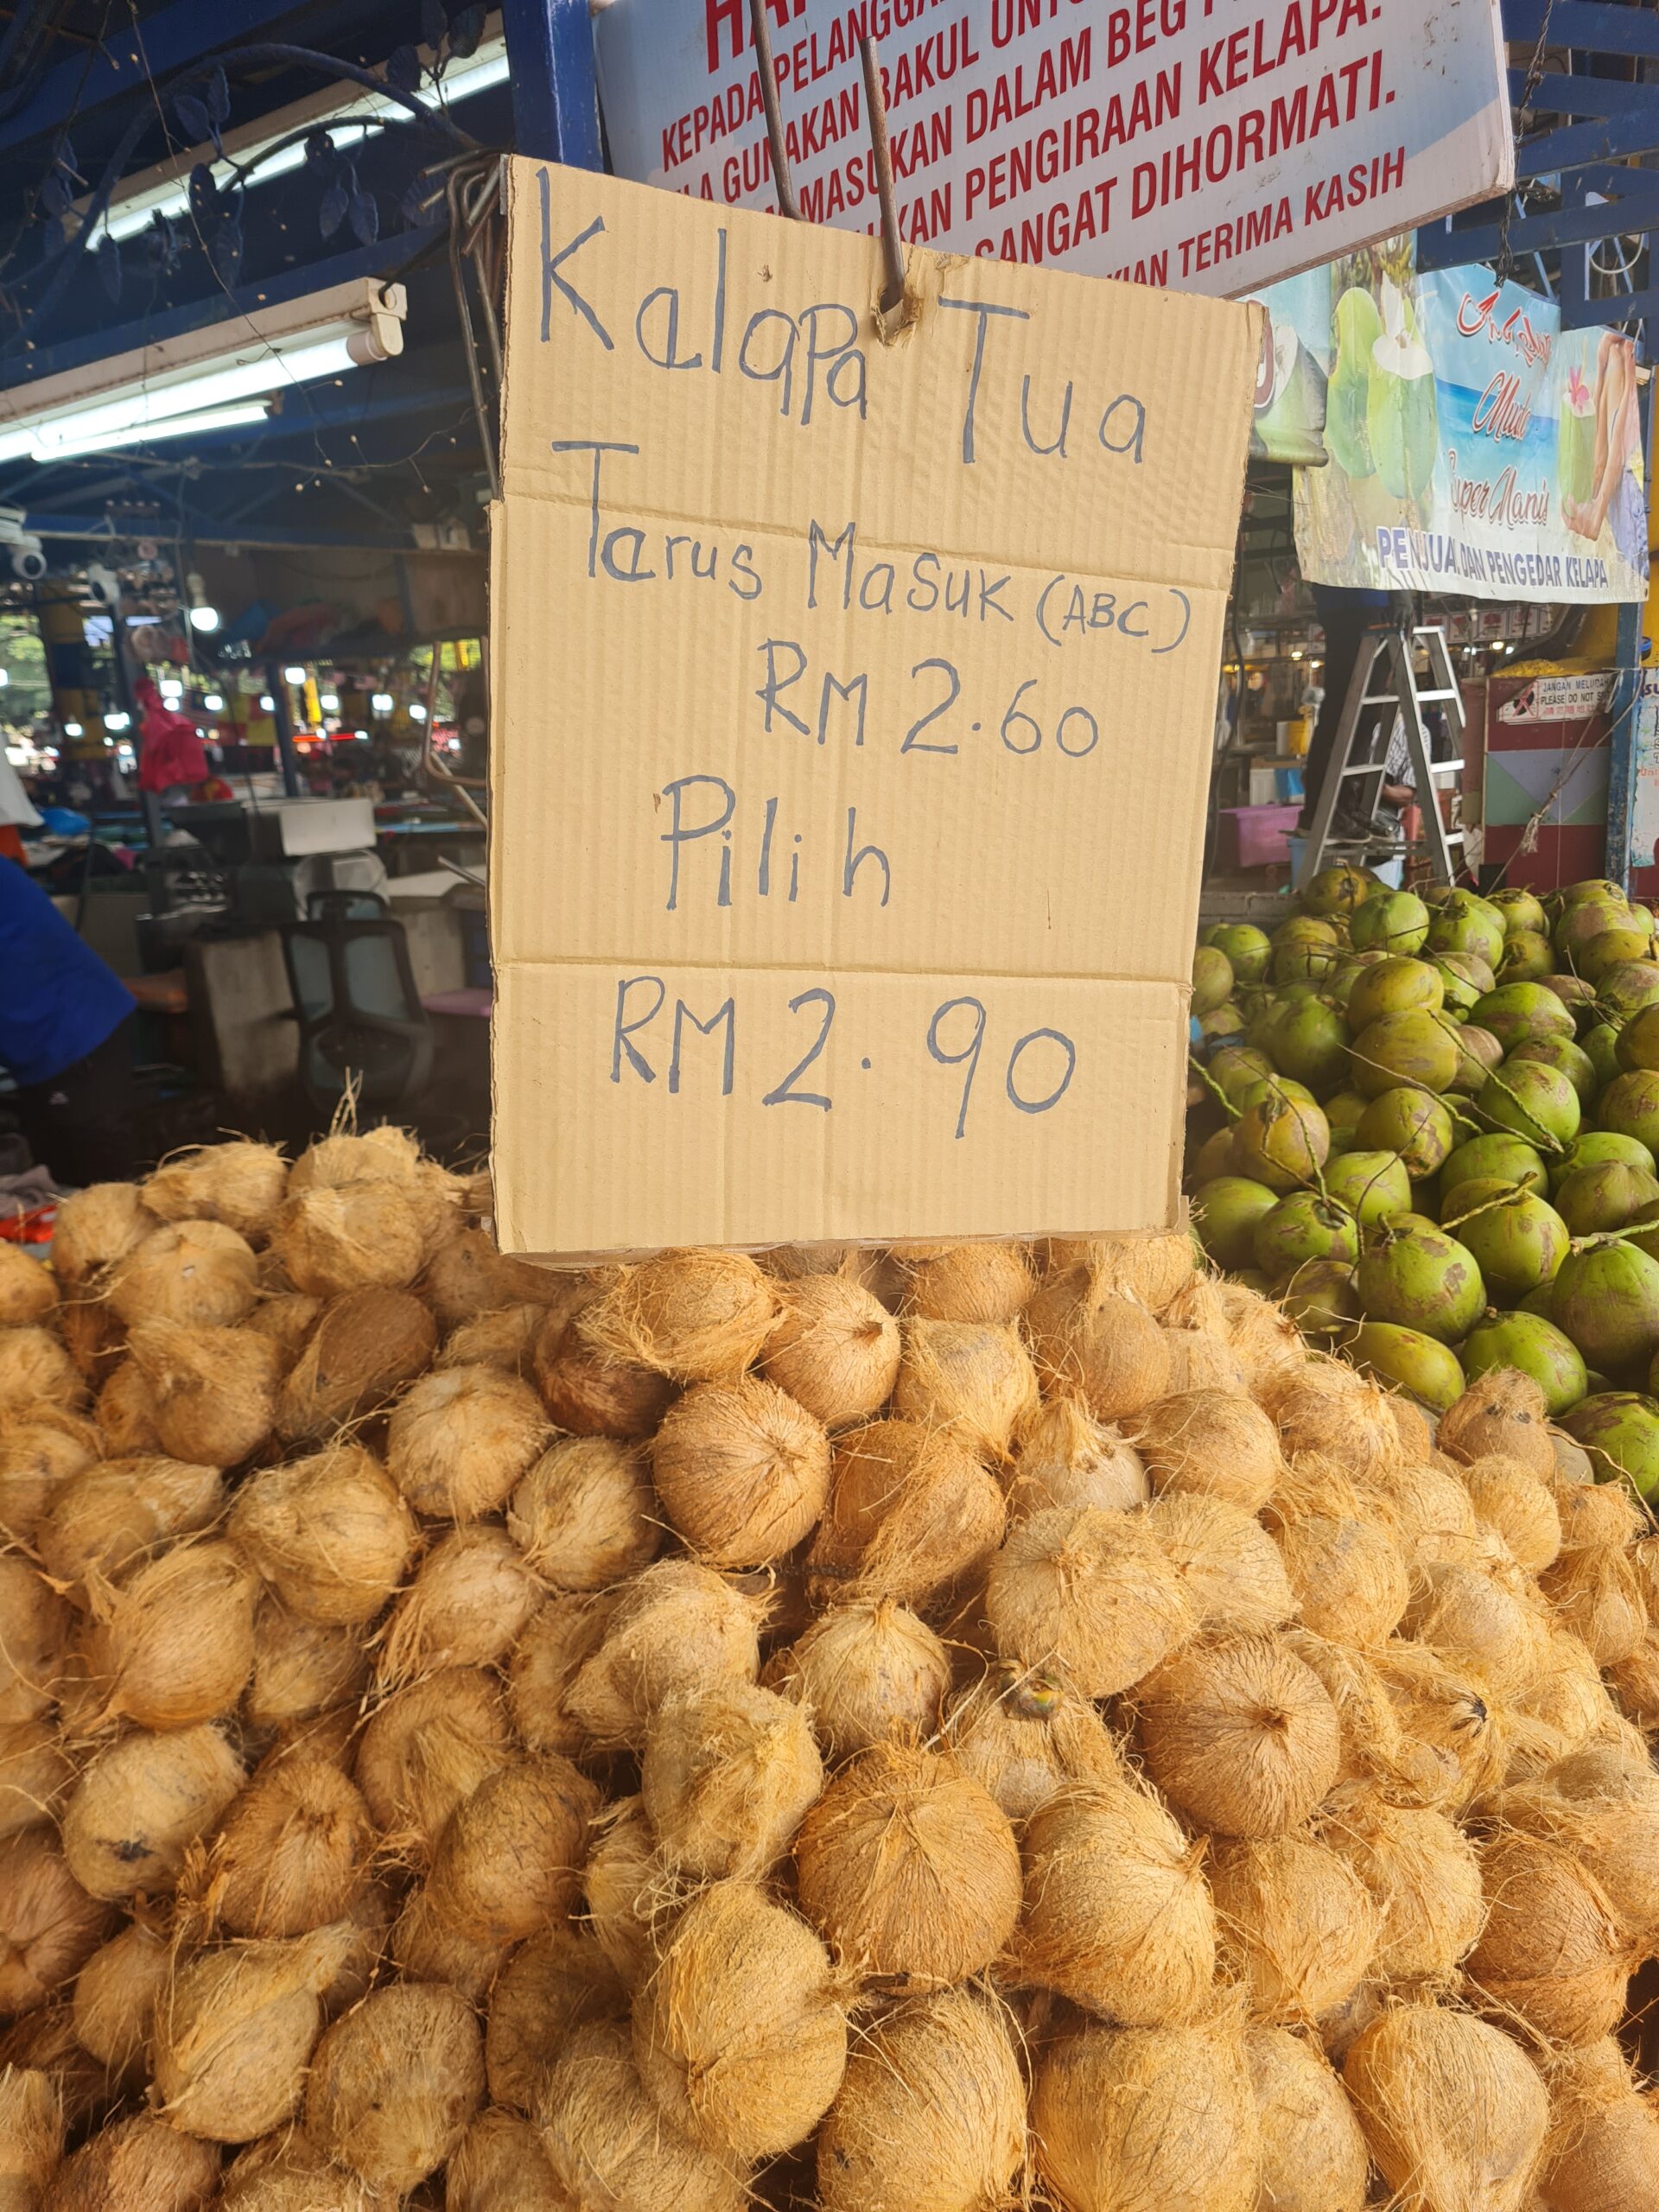 KEPADA PELANGGA
GUNAKAN BAKUL UNTU
MASUKAN DALAM BEG P
KAN PENGIRAAN KELAPA.
SANGAT DIHORMATI.
KIAN TERIMA KASIH
Kalapa Tua
Tarus Masuk (ABC)
RM 2.60
Pilih
RM 2.90
Muda
Super Manis
PENJUAL DAN PENGEDAR KELAPA
JANGAN MELUDAH
PLEASE DO NOT S